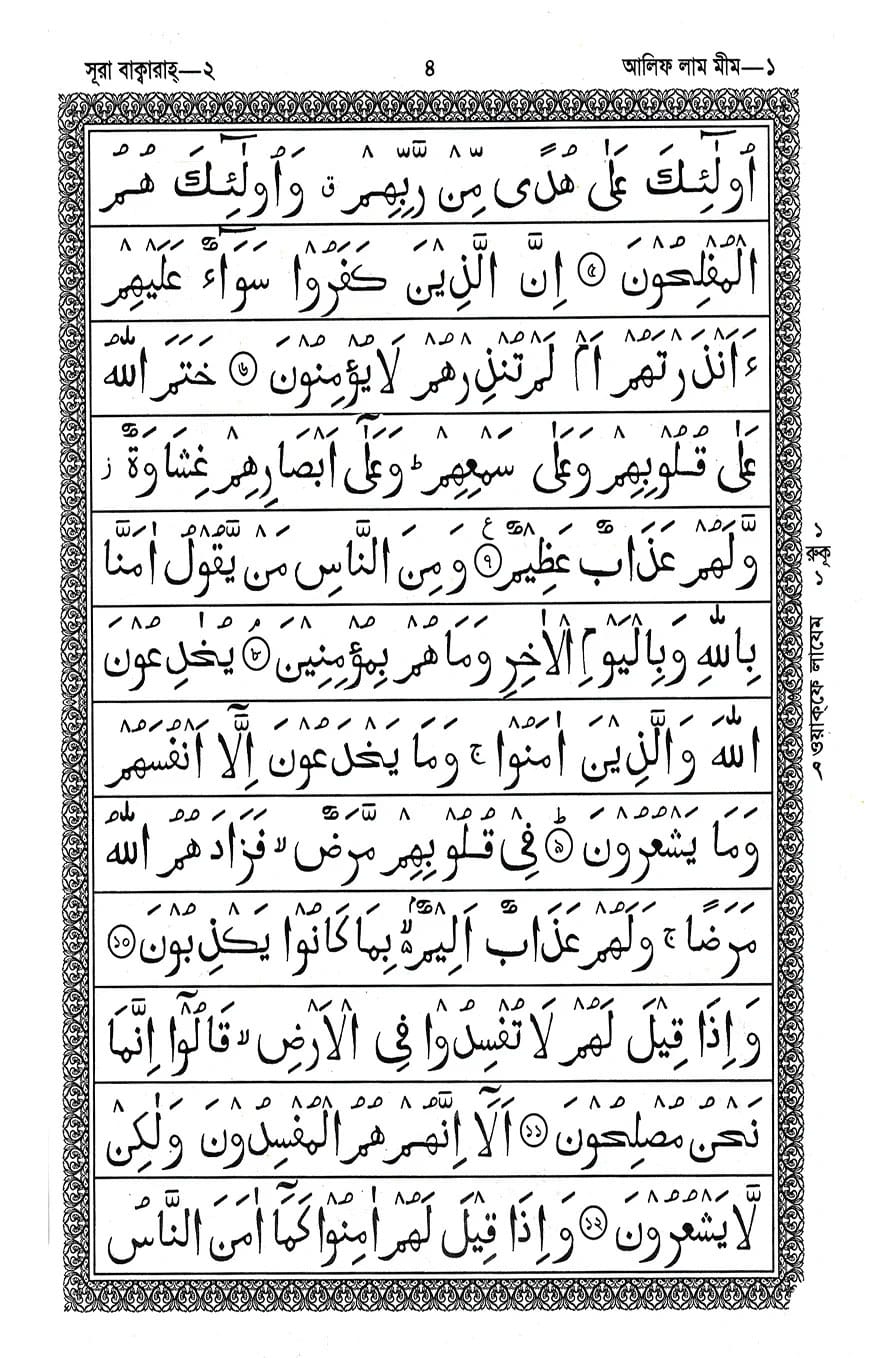 সূরা বাক্বারাহ্—২ ৪ আলিফ লাম মীম—১
اُولٰٓئِكَ عَلٰى هُدًى مِّنْ رَّبِّهِمْ ق وَاُولٰٓئِكَ هُمُ
الْمُفْلِحُوْنَ ৫ اِنَّ الَّذِيْنَ كَفَرُوْا سَوَآءٌ عَلَيْهِمْ
ءَاَنْذَرْتَهُمْ اَمْ لَمْ تُنْذِرْهُمْ لَا يُؤْمِنُوْنَ ৬ خَتَمَ اللّٰهُ
عَلٰى قُلُوْبِهِمْ وَعَلٰى سَمْعِهِمْ ط وَعَلٰٓى اَبْصَارِهِمْ غِشَاوَةٌ ز
وَّلَهُمْ عَذَابٌ عَظِيْمٌ ع ৭ وَمِنَ النَّاسِ مَنْ يَّقُوْلُ اٰمَنَّا
بِاللّٰهِ وَبِالْيَوْمِ الْاٰخِرِ وَمَا هُمْ بِمُؤْمِنِيْنَ م ৮ يُخٰدِعُوْنَ
اللّٰهَ وَالَّذِيْنَ اٰمَنُوْا ج وَمَا يَخْدَعُوْنَ اِلَّآ اَنْفُسَهُمْ
وَمَا يَشْعُرُوْنَ ط ৯ فِيْ قُلُوْبِهِمْ مَّرَضٌ لا فَزَادَهُمُ اللّٰهُ
مَرَضًا ج وَلَهُمْ عَذَابٌ اَلِيْمٌ ۢ بِمَا كَانُوْا يَكْذِبُوْنَ ১০
وَاِذَا قِيْلَ لَهُمْ لَا تُفْسِدُوْا فِى الْاَرْضِ لا قَالُوْٓا اِنَّمَا
نَحْنُ مُصْلِحُوْنَ ১১ اَلَآ اِنَّهُمْ هُمُ الْمُفْسِدُوْنَ وَلٰكِنْ
لَّا يَشْعُرُوْنَ ১২ وَاِذَا قِيْلَ لَهُمْ اٰمِنُوْا كَمَآ اٰمَنَ النَّاسُ
রুকূ ১
ওয়াক্ফে লাযেম